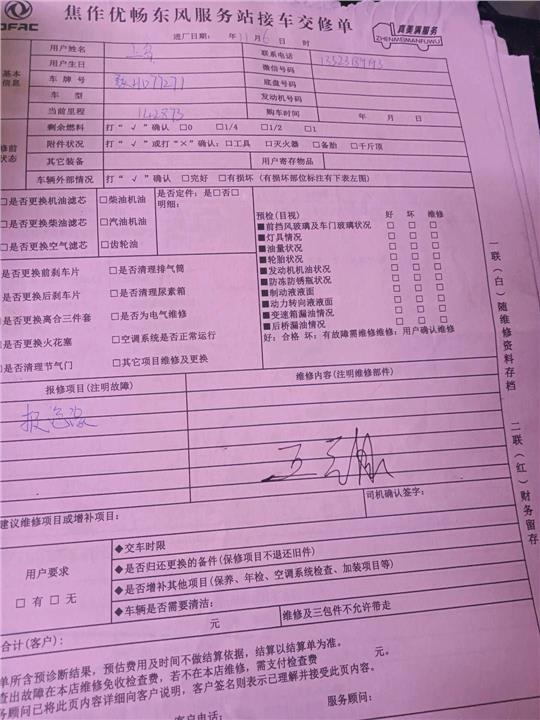 DFAC
焦作优畅东风服务站接车交修单
真美满服务
ZHENMEIMANFUWU
进厂日期： 年11月6日 时
用户姓名
联系电话
用户生日
微信号码
基本
信息
车牌号
底盘号码
车型
发动机号码
当前里程 142873
购车时间 年 月 日
修前
状态
剩余燃料 打“√”确认 □0 □1/4 □1/2 □1
附件状况 打“√”或打“×”确认：□工具 □灭火器 □备胎 □千斤顶
其它装备 用户寄存物品
车辆外部情况 打“√”确认 □完好 □有损坏（有损坏部位标注有下表左图）
□是否更换机油滤芯 □柴油机油
□是否更换柴油滤芯 □汽油机油
□是否更换空气滤芯 □齿轮油
是否定件：是□否□
明细：
□是否更换前刹车片 □是否清理排气筒
□是否更换后刹车片 □是否清理尿素箱
□是否更换离合三件套 □是否为电气维修
□是否更换火花塞 □空调系统是否正常运行
□是否清理节气门 □其它项目维修及更换
预检(目视) 好 坏 维修
■前挡风玻璃及车门玻璃状况 □ □ □
■灯具情况 □ □ □
■油量状况 □ □ □
■轮胎状况 □ □ □
■发动机机油状况 □ □ □
■防冻防锈瓶状况 □ □ □
■制动液液面 □ □ □
■动力转向液液面 □ □ □
■变速箱漏油情况 □ □ □
■后桥漏油情况 □ □ □
好：合格 坏：有故障需维修维修：用户确认维修
报修项目(注明故障) 维修内容(注明维修部件)
司机确认签字：
建议维修项目或增补项目：
用户要求
□有 □无
◆交车时限
◆是否归还更换的备件(保修项目不退还旧件)
◆是否增补其他项目(保养、年检、空调系统检查、加装项目等)
◆车辆是否需要清洁：
元 维修及三包件不允许带走
合计(客户)：
单所含预诊断结果，预估费用及时间不做结算依据，结算以结算单为准。
查出故障在本店维修免收检查费，若不在本店维修，需支付检查费 元。
务顾问已将此页内容详细向客户说明，客户签名则表示已理解并接受此页内容。
服务顾问：
客户电话：
一联（白）随维修资料存档
二联（红）财务留存